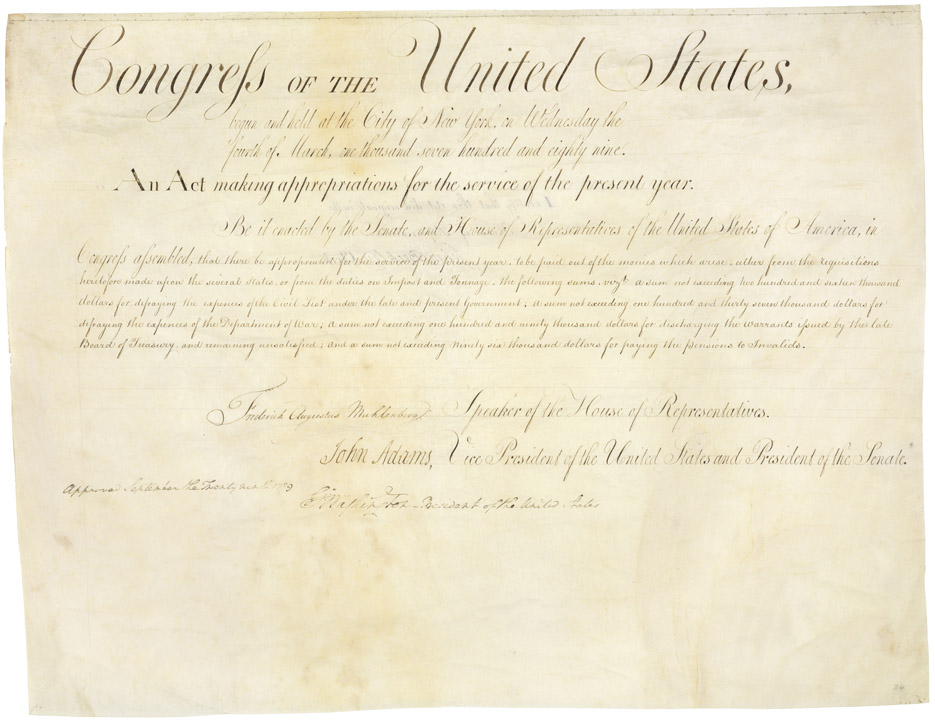 Congreſs OF THE United States,
begun and held at the City of New York, on Wednesday the
fourth of March, one thousand seven hundred and eighty nine.
An Act making appropriations for the service of the present year.
Be it enacted by the Senate, and House of Representatives of the United States of America, in
Congreſs aſsembled, that there be appropriated for the service of the present year, to be paid out of the monies which arise, either from the requisitions
heretofore made upon the several states, or from the duties on Impost and Tonnage, the following sums, vizt. a sum not exceeding two hundred and sixteen thousand
dollars for defraying the expences of the Civil List under the late and present Government; a sum not exceeding one hundred and thirty seven thousand dollars for
defraying the expences of the Department of War; a sum not exceeding one hundred and ninety thousand dollars for discharging the warrants iſsued by the late
Board of Treasury, and remaining unsatisfied; and a sum not exceeding Ninety six thousand dollars for paying the pensions to Invalids.
Frederick Augustus Muhlenberg Speaker of the House of Representatives.
John Adams, Vice President of the United States and President of the Senate.
Approved September the Twenty ninth 1789
Go. Waſhington President of the United States